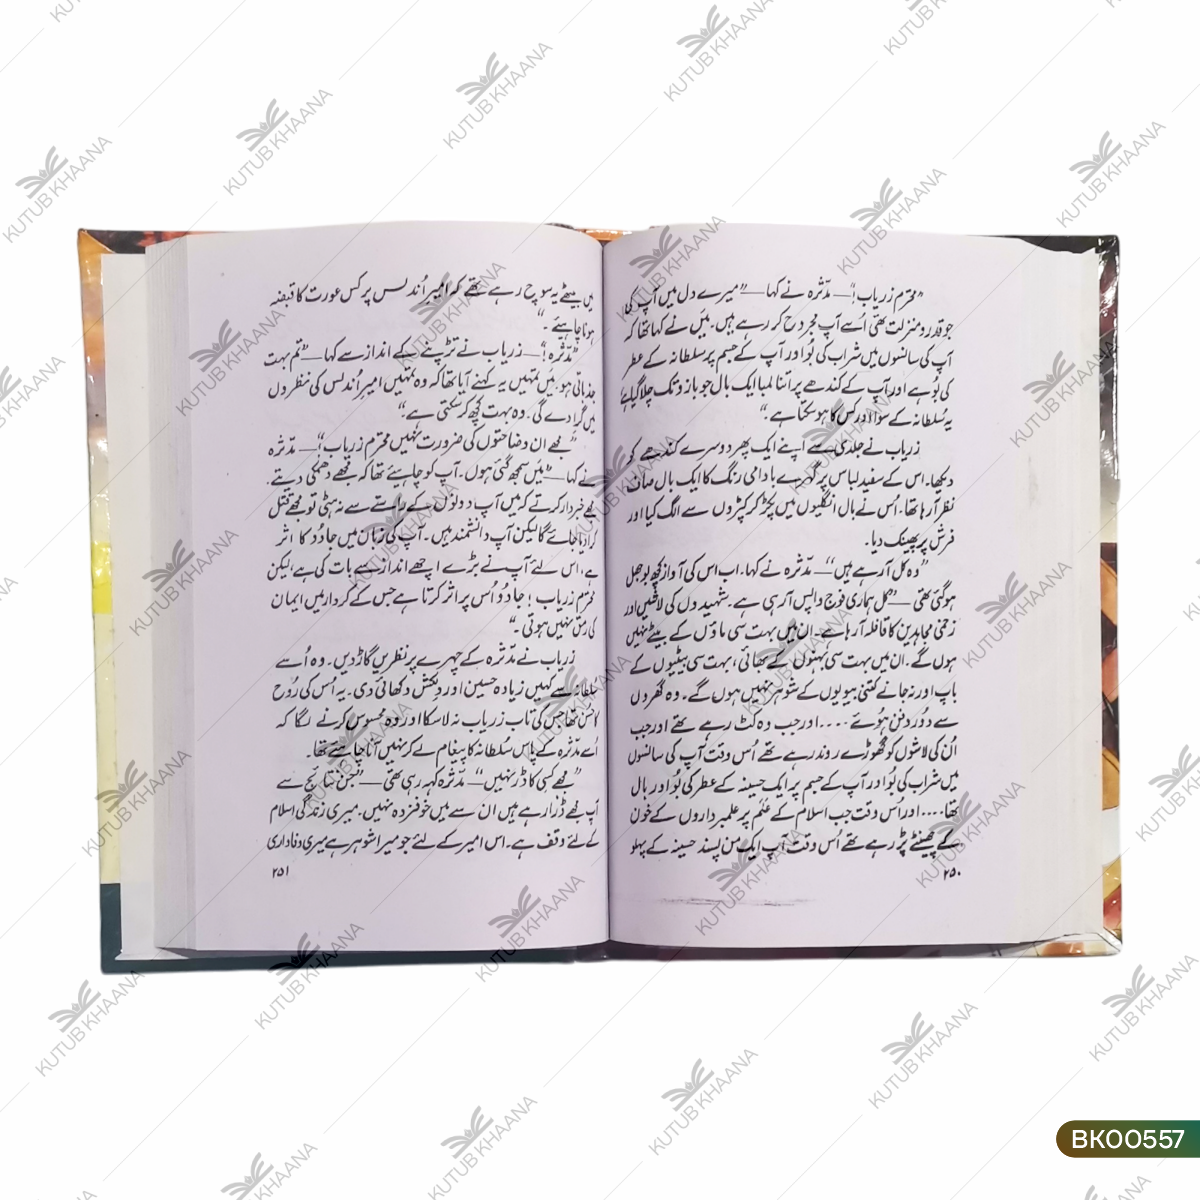 ”محترم زریاب!“ — مدّثرہ نے کہا — ”میرے دل میں آپ کی
جو قدر و منزلت تھی اُسے آپ مجروح کر رہے ہیں۔ میں نے کہا تھا کہ
آپ کی سانسوں میں شراب کی بُو اور آپ کے جسم پر سلطانہ کے عطر
کی بُو ہے اور آپ کے کندھے پر اتنا لمبا ایک بال جو بازو تک چلا گیا ہے
یہ سُلطانہ کے سوا اور کس کا ہو سکتا ہے۔“
زریاب نے جلدی سے اپنے ایک پھر دوسرے کندھے کو
دیکھا۔ اس کے سفید لباس پر گہرے بادامی رنگ کا ایک بال صاف
نظر آ رہا تھا۔ اُس نے بال انگلیوں میں پکڑ کر کپڑوں سے الگ کیا اور
فرش پر پھینک دیا۔
”وہ کل آ رہے ہیں“ — مدّثرہ نے کہا۔ اب اس کی آواز کچھ بوجھل
ہو گئی تھی — ”کل ہماری فوج واپس آ رہی ہے۔ شہیدوں کی لاشیں اور
زخمی مجاہدین کا قافلہ آ رہا ہے۔ ان میں بہت سی ماؤں کے بیٹے نہیں
ہوں گے۔ ان میں بہت سی بہنوں کے بھائی، بہت سی بیٹیوں کے
باپ اور نہ جانے کتنی بیویوں کے شوہر نہیں ہوں گے۔ وہ گھروں
سے دُور دفن ہوئے .... اور جب وہ کٹ رہے تھے اور جب
اُن کی لاشوں کو گھوڑے روند رہے تھے اُس وقت آپ کی سانسوں
میں شراب کی بُو اور آپ کے جسم پر ایک حسینہ کے عطر کی بُو اور بال
تھا .... اور اُس وقت جب اسلام کے عَلَم پر علمبرداروں کے خون
کے چھینٹے پڑ رہے تھے اُس وقت آپ ایک من پسند حسینہ کے پہلو
۲۵۰
میں بیٹھے یہ سوچ رہے تھے کہ امیرِ اُندلس پر کس عورت کا قبضہ
ہونا چاہیئے۔“
”مدّثرہ!“ — زریاب نے تڑپنے کے انداز سے کہا — ”تم بہت
جذباتی ہو۔ میں تمہیں یہ کہنے آیا تھا کہ وہ تمہیں امیرِ اُندلس کی نظروں
میں گرا دے گی۔ وہ بہت کچھ کر سکتی ہے۔“
”مجھے ان وضاحتوں کی ضرورت نہیں محترم زریاب!“ — مدّثرہ
نے کہا — ”میں سمجھ گئی ہوں۔ آپ کو چاہیئے تھا کہ مجھے دھمکی دیتے۔
مجھے خبردار کرتے کہ میں آپ دونوں کے راستے سے نہ ہٹی تو مجھے قتل
کرا دیا جائے گا لیکن آپ دانشمند ہیں۔ آپ کی زبان میں جادُو کا اثر
ہے، اس لئے آپ نے بڑے اچھے انداز سے بات کی ہے، لیکن
محترم زریاب! جادُو اُس پر اثر کرتا ہے جس کے کردار میں ایمان
کی رمق نہیں ہوتی۔“
زریاب نے مدّثرہ کے چہرے پر نظریں گاڑ دیں۔ وہ اُسے
سلطانہ سے کہیں زیادہ حسین اور دلکش دکھائی دی۔ یہ اُس کی رُوح
کا حُسن تھا جس کی تاب زریاب نہ لا سکا اور وہ محسوس کرنے لگا کہ
اُسے مدّثرہ کے پاس سُلطانہ کا پیغام لے کر نہیں آنا چاہئے تھا۔
”مجھے کسی کا ڈر نہیں“ — مدّثرہ کہہ رہی تھی — ”جن نتائج سے
آپ مجھے ڈرا رہے ہیں ان سے میں خوفزدہ نہیں۔ میری زندگی اسلام
کے لئے وقف ہے۔ اس امیر کے لئے جو میرا شوہر ہے میری وفاداری
۲۵۱
KUTUB KHAANA
BK00557